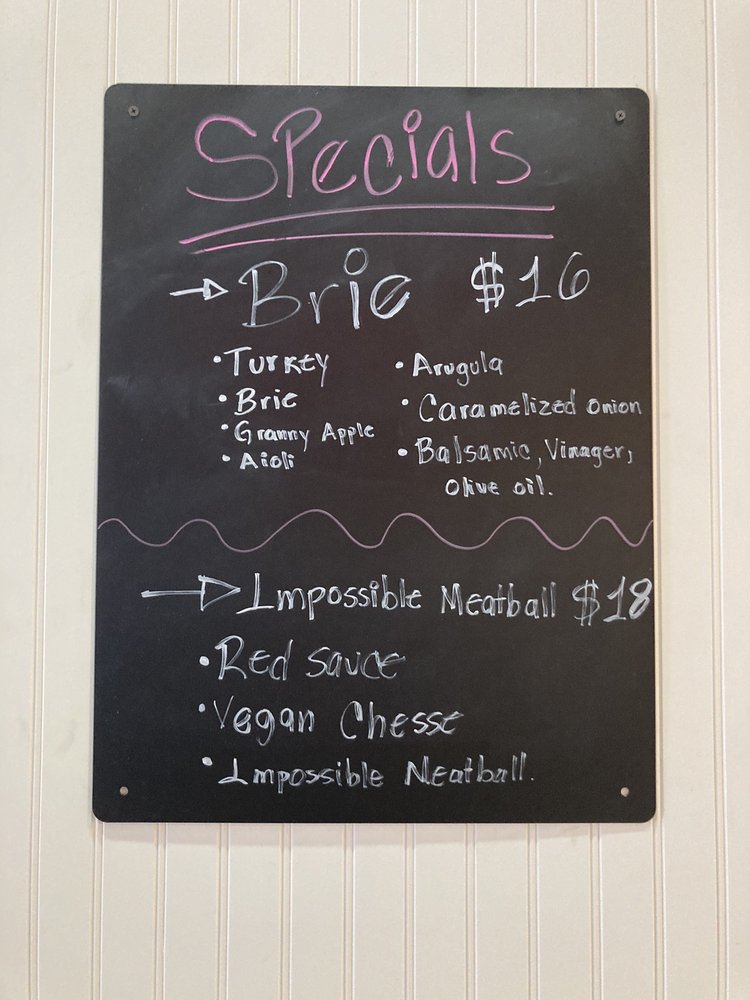 Specials
Brie $16
• Turkey
• Brie
• Granny Apple
• Aioli
• Arugula
• Caramelized onion
• Balsamic, Vinager,
Olive oil.
Impossible Meatball $18
• Red sauce
• Vegan Chesse
• Impossible Meatball.